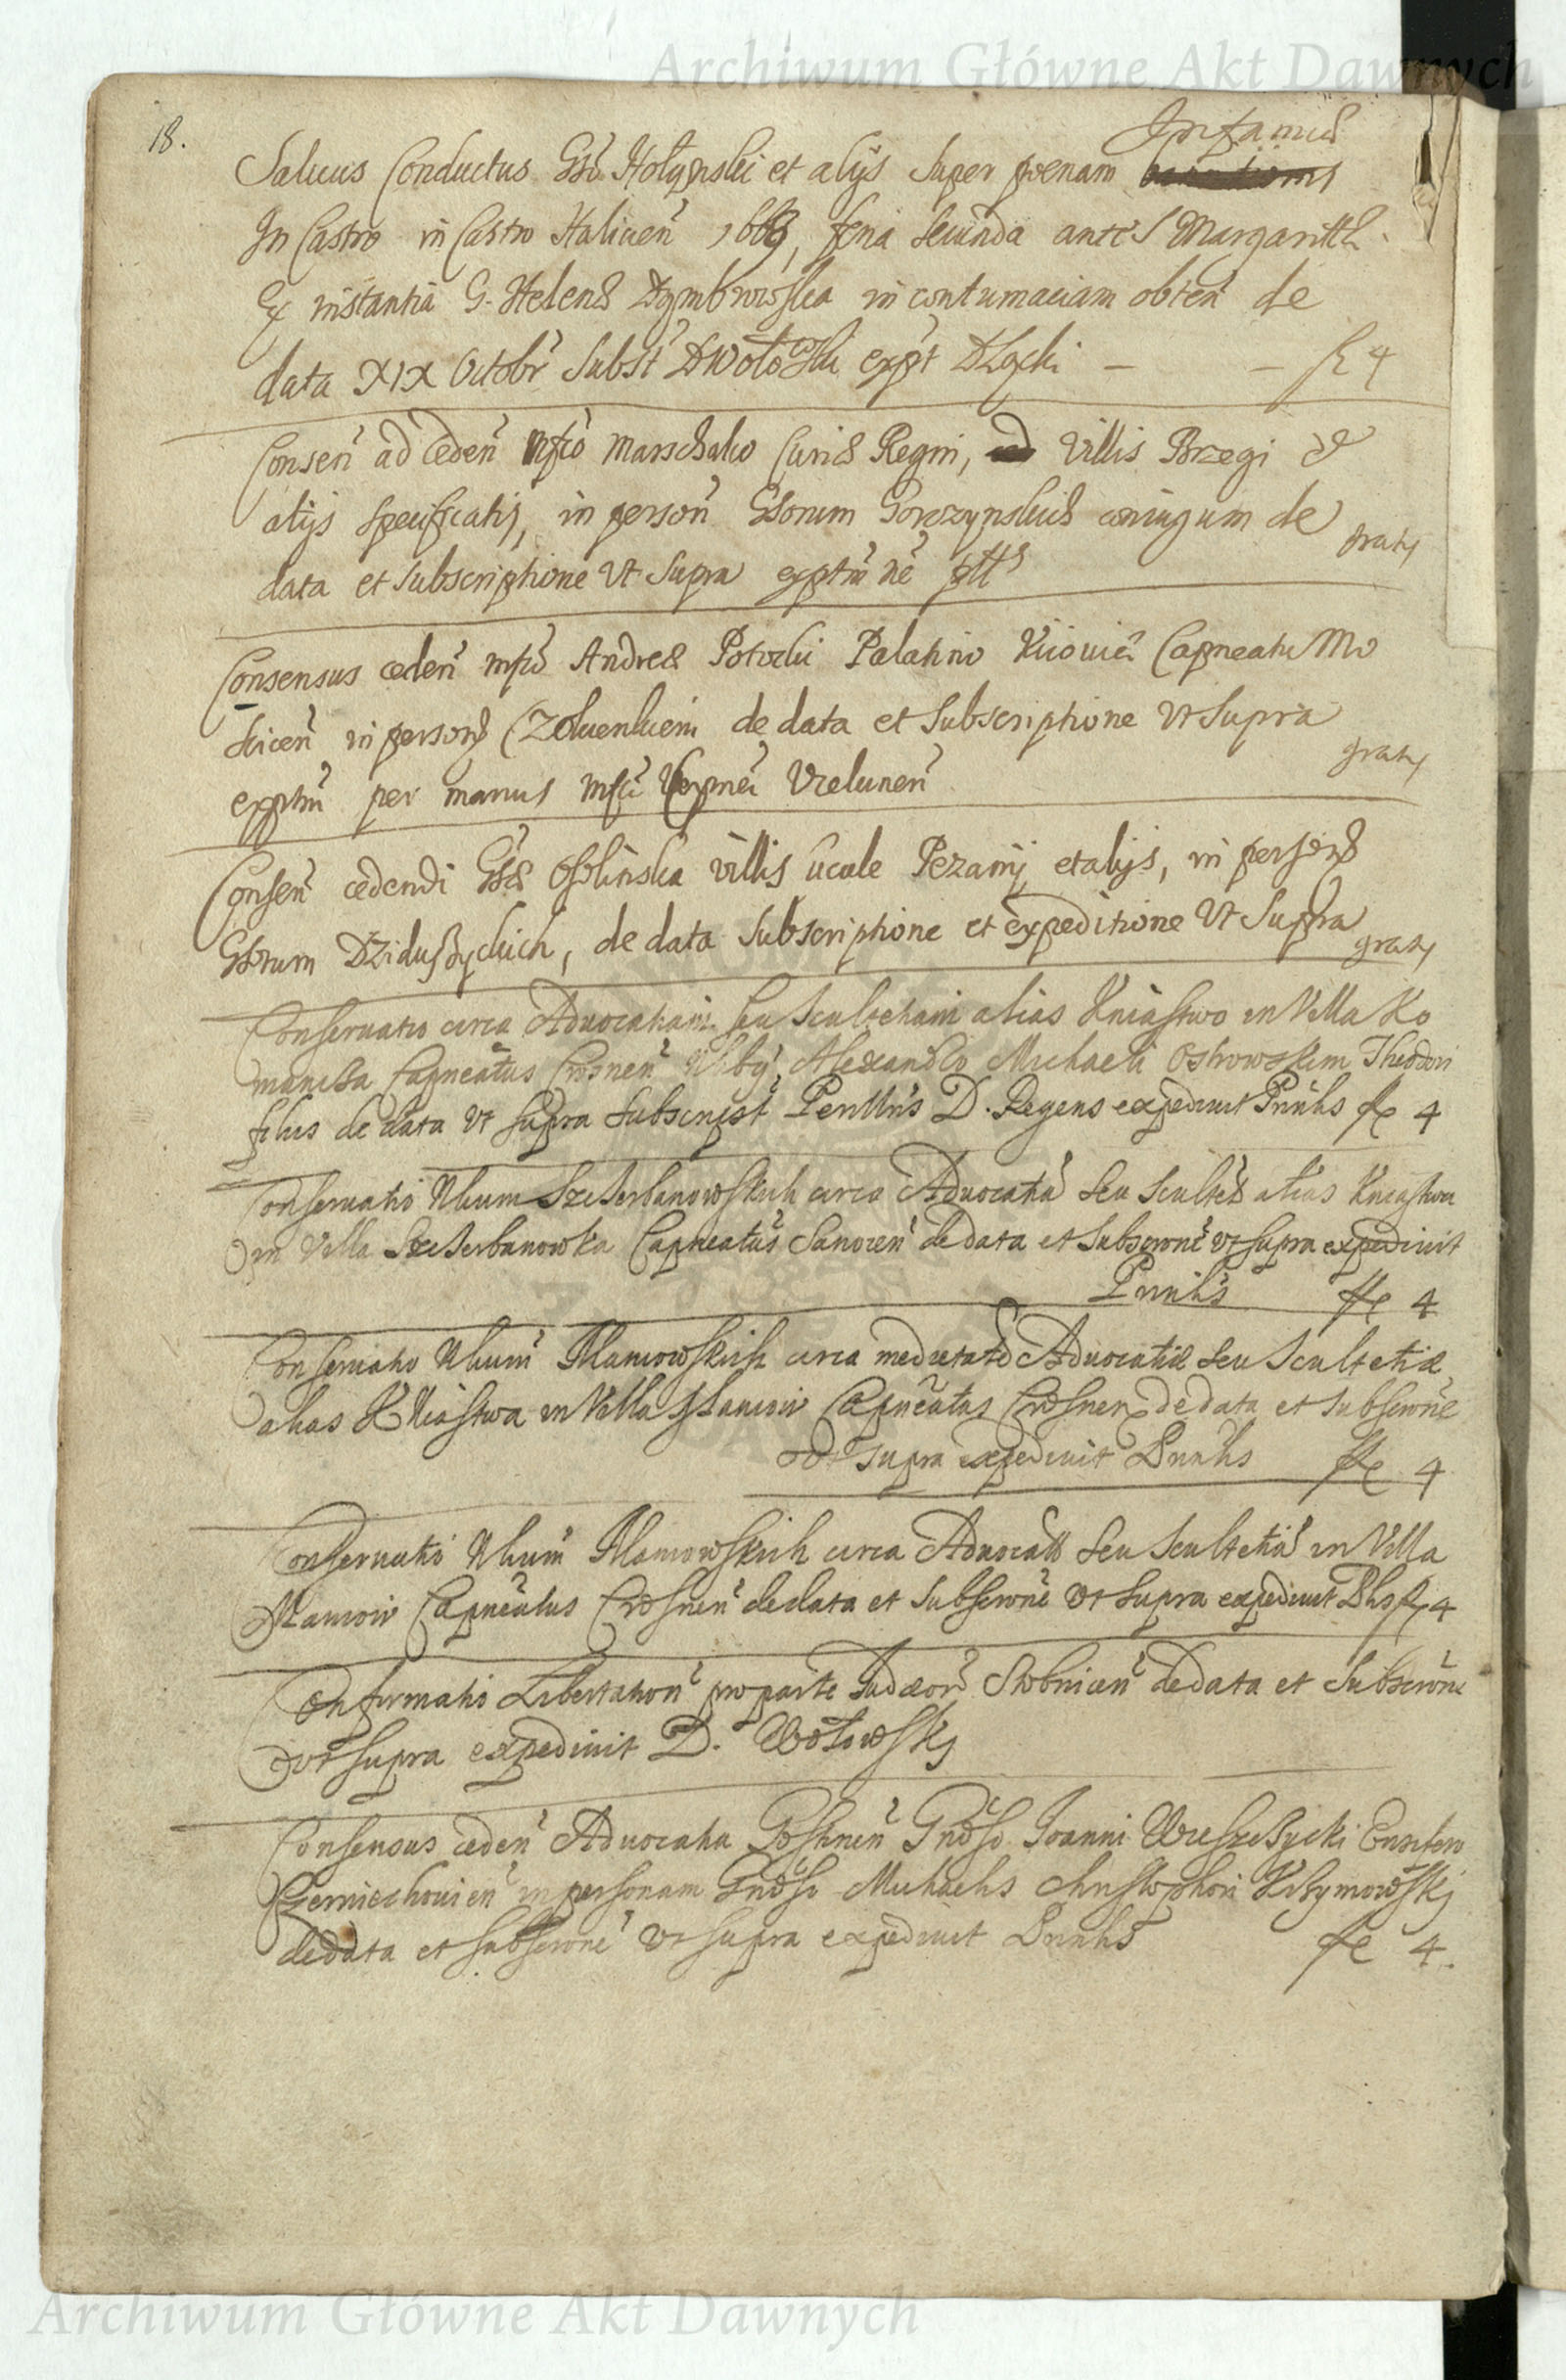 Archiwum Główne Akt Dawnych
18.
Infamiæ
Saluus Conductus Gso Hołynski et alijs super pœnam
In Castro in Castro Haliceñ 1663, feria secunda ante S Margarith
Ex instantia G. Helenæ Dymbrowska in contumaciam obteñ de
data XIX Octobr Subst D Wołowski expt D Łącki — — fl 4
Conseñ ad cedeñ Mfco Marschalco Curiæ Regni, villis Brzegi &
alijs specificatis, in persoñ Gsorum Gorczynskich coniugum de
gratis
data et subscriptione Vt Supra exptm
Consensus cedeñ Mfco Andreæ Potocki Palatino Kiiouieñ Capneatu Mo
sciceñ in personã de data et Subscriptione Vt Supra
gratis
exptm per manus Mfci Vieluneñ
Conseñ cedendi Gsæ Ossolinska villis Pezanij et alijs, in personã
Gsorum Dziduszyckich, de data Subscriptione et expeditione Vt Supra
gratis
Conseruatio circa Advocatiam seu Scultetiam alias Kniastwo in Villa Ko
mancza Capneatus Crosneñ Alexandro Michaeli Ostrowskim Theodori
filius de data vt supra subscripst D. Regens expediuit fl 4
Conseruatio Szczerbanowskich circa Aduocatiã seu Scultetiã alias Kniastwa
in Villa Szczerbanowka Capneatus Sanoceñ de data et Subscrone vt supra expediuit
fl 4
Conseruatio Maniowskich circa medietatẽ Aduocatiæ seu Scultetiæ
alias Kniastwa in Villa Maniow Capneatus Crosneñ de data et subscrone
vt supra expediuit fl 4
Conseruatio Maniowskich circa Aduocatiæ seu Scultetiæ in Villa
Maniow Capneatus Crosneñ de data et subscrone vt supra expediuit fl 4
Confirmatio Libertatioñ pro parte Judæorũ Stobniceñ de data et Subscrone
vt supra expediuit D. Wołowskj
Consensus cedeñ Aduocatia Gnoso Joanni Ensifero
Czerniechouieñ in personam Gnoso Michaelis Christophori Krzymowskj
de data et subscrone vt supra expediuit fl 4.
Archiwum Główne Akt Dawnych